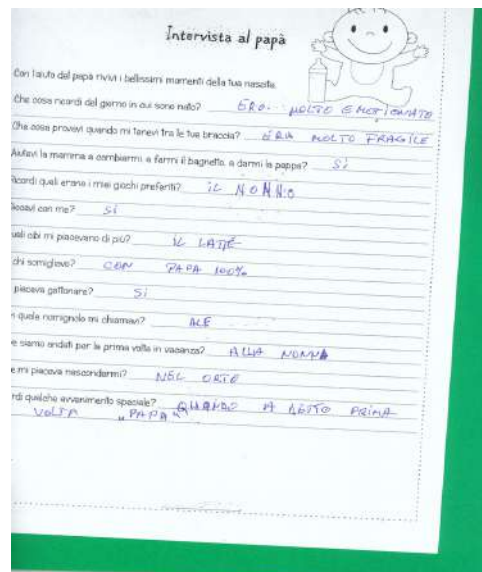 Intervista al papà
Con l'aiuto del papà rivivi i bellissimi momenti della tua nascita.
Che cosa ricordi del giorno in cui sono nato? ERO... MOLTO EMOTIONATO
Che cosa provavi quando mi tenevi tra le tue braccia? ERA MOLTO FRAGILE
Aiutavi la mamma a cambiarmi, a farmi il bagnetto, a darmi la pappa? SÌ
Ricordi quali erano i miei giochi preferiti? IL NONNO
Giocavi con me? SÌ
uali cibi mi piacevano di più? IL LATTE
chi somigliavo? CON PAPA 100%
piaceva gattonare? SI
n quale nomignolo mi chiamavi? ALE
e siamo andati per la prima volta in vacanza? ALLA NONNA
e mi piaceva nascondermi? NEL ORTO
rdi qualche avvenimento speciale? QUANDO A DETTO PRIMA
VOLTA "PAPA"